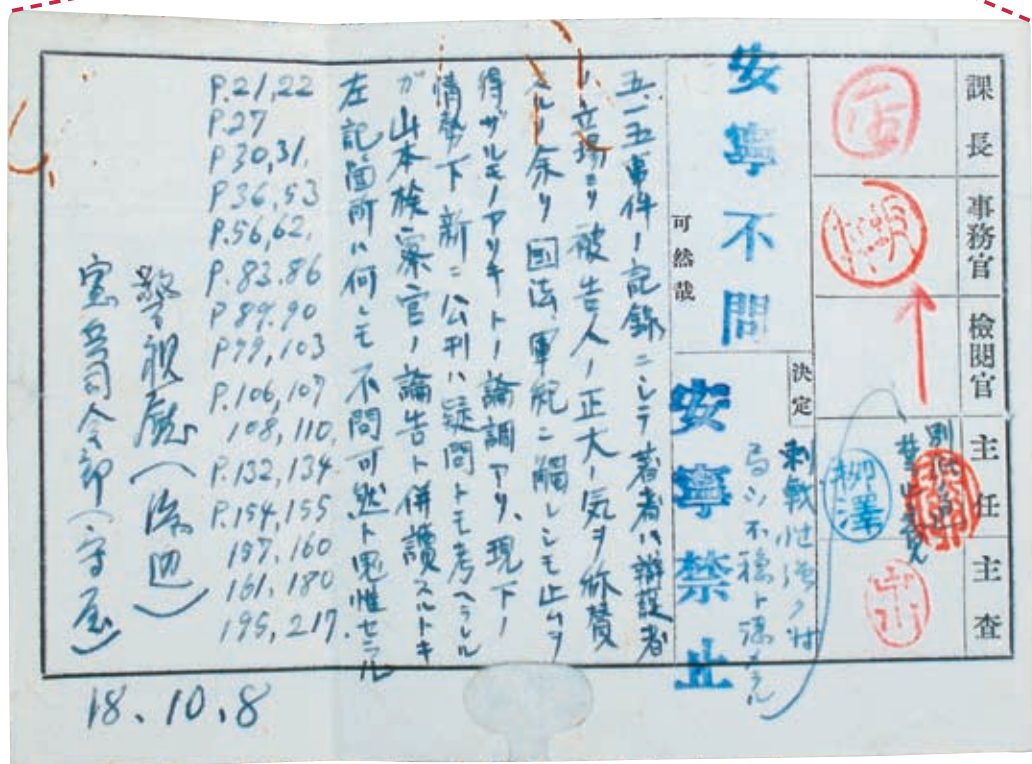 課長
事務官
檢閲官
主任
主査
柳澤
決定
安寧不問
可然哉
安寧禁止
刺戟性強ク時
局ツ不穏ト認メラル
五、一五事件ノ記録ニシテ著者ハ辯護者
ノ立場ヨリ被告人ノ正大ノ気ヲ称賛
スルノ余リ國法、軍紀ニ觸レシモ止ムヲ
得ザルモノアリキトノ論調アリ、現下ノ
情勢下新ニ公刊ハ疑問トモ考ヘラレル
ガ山本検察官ノ論告ト併讀スルトキ
左記箇所ハ何レモ不問可然ト思惟セラル
P.21,22
P.27
P30,31.
P36,53
P.56,62.
P.83,86
P89.90
P99,103
P.106,107
108,110.
P.132,134
P.154,155
157,160
161,180
195,217.
警視廳(渡辺)
憲兵司令部(守屋)
18.10.8